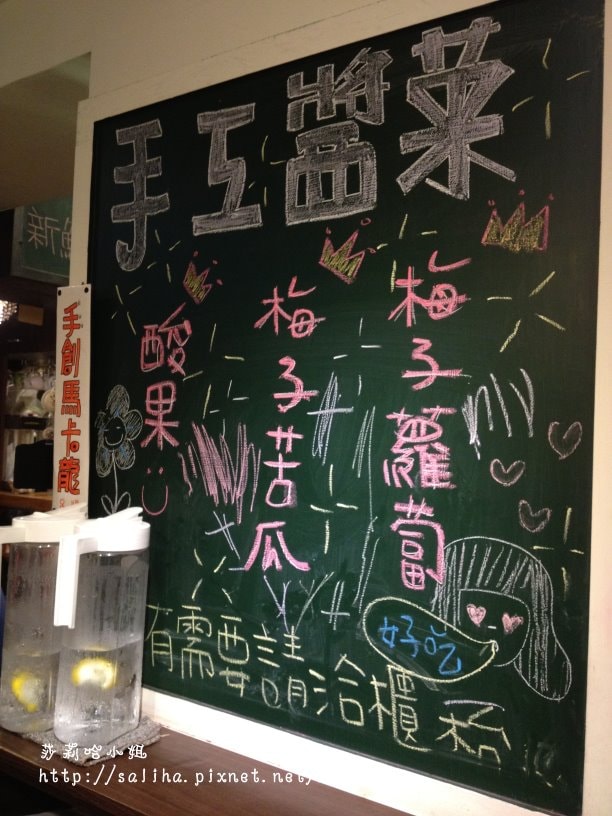 手工醬菜
梅子蘿蔔
梅子苦瓜
酸果
好吃
有需要請洽櫃
手創馬卡龍
莎莉哈小姐
http://saliha.pixnet.net/